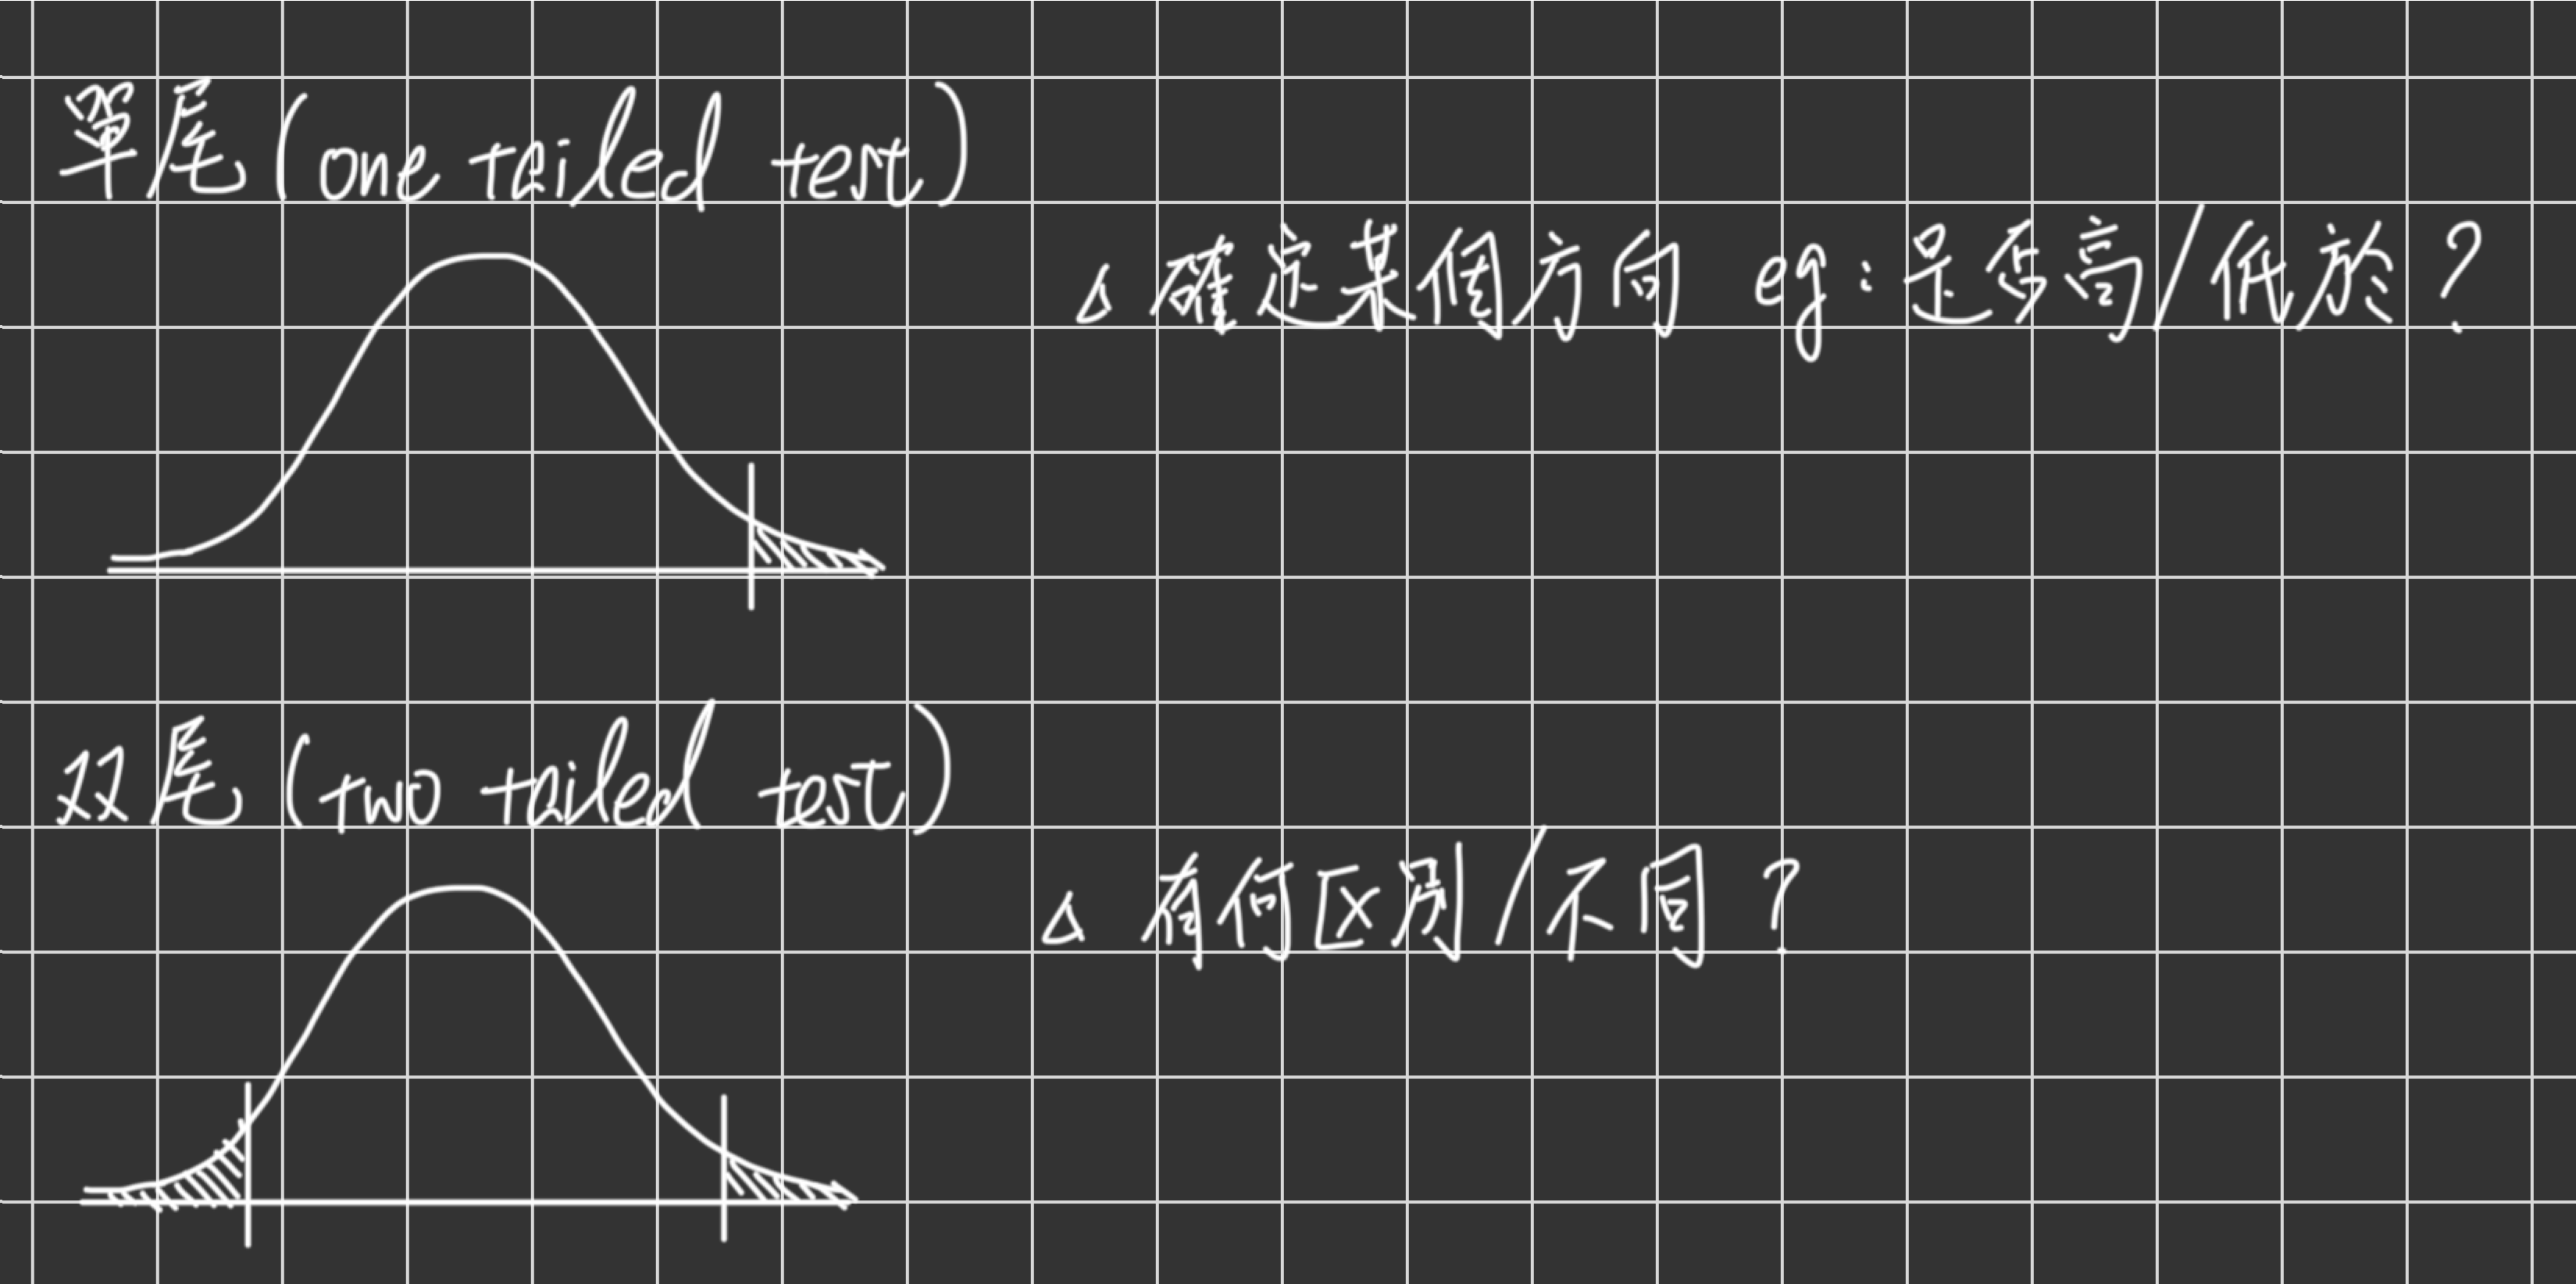 單尾(one tailed test)
△ 確定某個方向 eg:是否高/低於?
双尾(two tailed test)
△ 有何区别/不同?